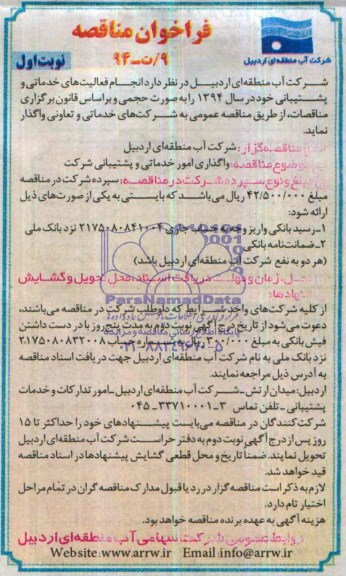 فراخوان مناقصه
۹/ت-۹۴
شرکت آب منطقه‌ای اردبیل
نوبت اول
شرکت آب منطقه‌ای اردبیل در نظر دارد انجام فعالیت‌های خدماتی و
پشتیبانی خود در سال ۱۳۹۴ را به صورت حجمی و براساس قانون برگزاری
مناقصات، از طریق مناقصه عمومی به شرکت‌های خدماتی و تعاونی واگذار
نماید.
مناقصه‌گزار: شرکت آب منطقه‌ای اردبیل
موضوع مناقصه: واگذاری امور خدماتی و پشتیبانی شرکت
مبلغ و نوع سپرده شرکت در مناقصه: سپرده شرکت در مناقصه
مبلغ ۴۲/۵۰۰/۰۰۰ ریال می‌باشد که بایستی به یکی از صورت‌های ذیل
ارائه شود:
۱-رسید بانکی واریز وجه به حساب جاری ۲۱۷۵۰۸۰۸۴۱۰۰۴ نزد بانک ملی
۲-ضمانت‌نامه بانکی
(هر دو به نفع شرکت آب منطقه‌ای اردبیل باشد)
محل، زمان و مهلت دریافت اسناد، محل تحویل و گشایش
پیشنهادها:
ParsNamadData
از کلیه شرکت‌های واجد شرایط که داوطلب شرکت در مناقصه می‌باشند،
دعوت می‌شود از تاریخ درج آگهی نوبت دوم به مدت پنج روز با در دست داشتن
فیش بانکی به مبلغ ریال به شماره حساب ۲۱۷۵۰۸۰۸۳۲۰۰۸
نزد بانک ملی به نام شرکت آب منطقه‌ای اردبیل جهت دریافت اسناد مناقصه
به آدرس ذیل مراجعه نمایند.
اردبیل: میدان ارتش_شرکت آب منطقه‌ای اردبیل_امور تدارکات و خدمات
پشتیبانی_تلفن تماس ۳-۳۳۷۱۰۰۰۱-۰۴۵
شرکت‌کنندگان در مناقصه می‌بایست پیشنهادهای خود را حداکثر تا ۱۵
روز پس از درج آگهی نوبت دوم به دفتر حراست شرکت آب منطقه‌ای اردبیل
تحویل نمایند. ضمناً تاریخ و محل قطعی گشایش پیشنهادها در اسناد مناقصه
قید خواهد شد.
لازم به ذکر است مناقصه‌گزار در رد یا قبول مدارک مناقصه‌گران در تمام مراحل
اختیار تام دارد.
هزینه آگهی به عهده برنده مناقصه خواهد بود.
روابط عمومی شرکت سهامی آب منطقه‌ای اردبیل
Website:www.arrw.ir Email:info@arrw.ir